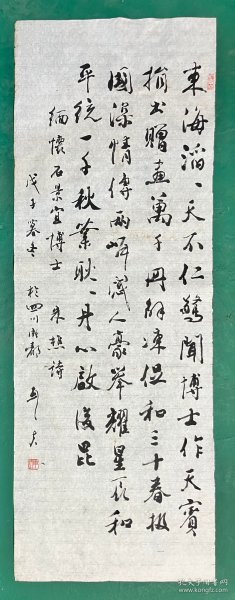 東海滔、天不仁驚聞博士作天賓
捐書贈畫萬千冊解凍促和三十春報
國深情傳兩岸感人豪舉耀星辰和
平統一千秋業耿、丹心啟後昆
緬懷石景宜博士 朱樵詩
戊子暮冬 於四川成都
孔夫子旧书网
www.kongfz.com